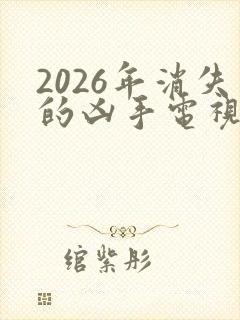 2026年消失
的凶手電視
绾紫彤